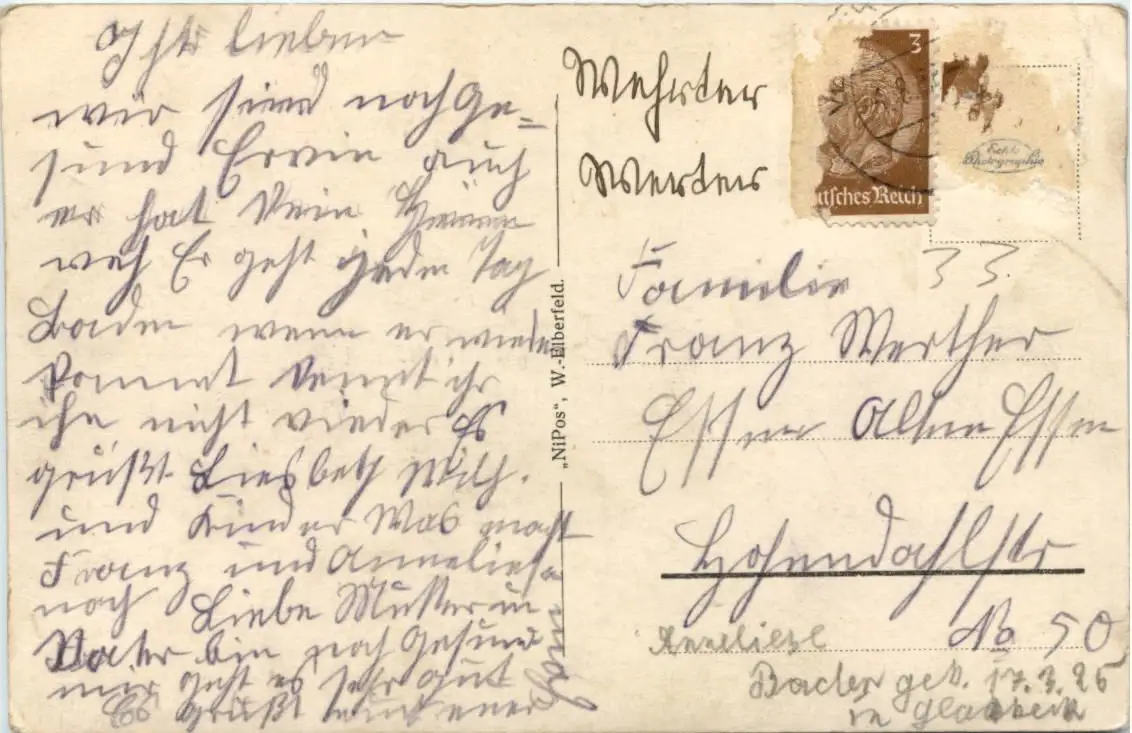 Ihr lieben
wir sind noch ge-
sund Erwin auch
er hat kein Heim
weh Er geht jeden Tag
Baden wenn er wieder
kommt kennt ihr
ihn nicht wieder Es
grüßt Liesbeth Wilh.
und Kinder Was macht
Franz und Anneliese
noch Liebe Mutter un
Vater bin noch Gesund
mir geht es sehr gut
Es grüßt euch euer
"NiPos", W.-Elberfeld.
Wehrter
Werters
3
utsches Reich
Echte
Photographie
33
Familie
Franz Werther
Essen Alten Essen
Hohendahlstr
No 50
Anneliese
Bader geb. 17.3.25
in Gladbeck